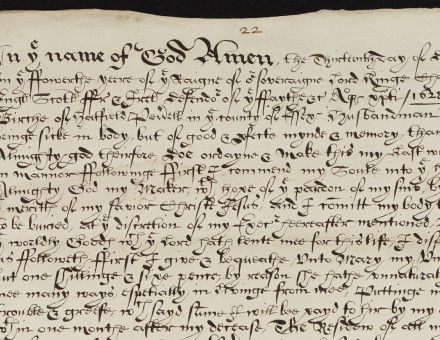 22
In yͤ name of God Amen, the Thirteenth day of
in yͤ ffowerthe yeere of yͤ Raigne of oͬ Soveraigne Lord Kinge
Scotl ffr & Irel, defendoͬ of yͤ ffaythe &c Ao 1628
of Hatfeild Peverell in yͤ county of Essex Husbandman
beinge sicke in body, but of good & pfecte mynde & memory, thankes
Almighty god therefore, doe ordayne & make this my last will
in mannor followinge ffirst I commend my Soule into yͤ
Almighty God my Maker, wͭʰ hope of yͤ pardon of my sins by
meritts of my savior Christe Jesus, And I comitt my body
to be buried, at yͤ discretion of my Executͬ hereafter mentioned
yͤ worldly Goods wͨʰ yͤ Lord hath lente mee for this life, I
as followeth ffirst I give & bequeathe unto Mary my
but one Shillinge & sixe pence, by reason she hathe unnaturally
mee many ways, especially in from mee, Puttinge
trouble & greefe, wͨʰ sayd summe I will bee payd to her by my
wͭʰin one monthe after my decease, The Residew of all my